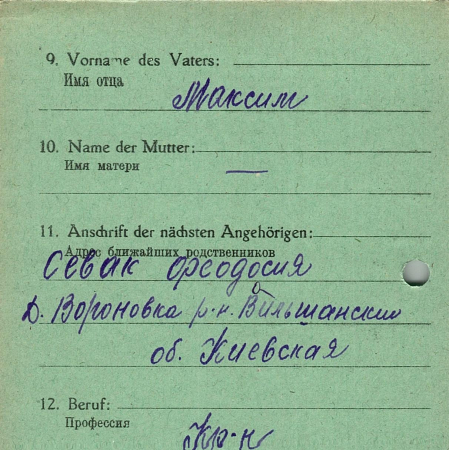 9. Vorname des Vaters:
Имя отца
Максим
10. Name der Mutter:
Имя матери
—
11. Anschrift der nächsten Angehörigen:
Адрес ближайших родственников
Севак Феодосия
д. Вороновка р-н. Вильшанский
об. Киевская
12. Beruf:
Профессия
Кр-н